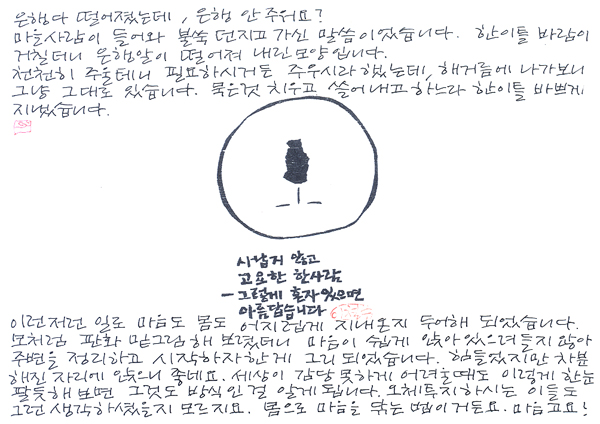 은행다 떨어졌는데, 은행 안 주워요?
마을사람이 들어와 불쑥 던지고 가신 말씀이었습니다. 한이틀 바람이
거칠더니 은행알이 떨어져 내린 모양입니다.
천천히 주울테니 필요하시거든 주우시라 했는데, 해거름에 나가보니
그냥 그대로 있습니다. 묵은것 치우고 쓸어내고 하느라 한이틀 바쁘게
지냈습니다.
시납거 않고
고요한 한사람
- 그렇게 혼자 있으면
아름답습니다
이런저런 일로 마음도 몸도 어지럽게 지내온지 두어해 되었습니다.
모처럼 판화 밑그림 해 보렸더니 마음이 쉽게 앉아 있으려 들지 않아
주변을 정리하고 시작하자 한 게 그리 되었습니다. 힘들었지만 차분
해진 자리에 앉으니 좋네요. 세상이 감당 못하게 어려울때도 이렇게 한눈
팔듯 해 보면 그것도 방식인 걸 알게 됩니다. 오체투지하시는 이들도
그런 생각하셨을지 모르지요. 몸으로 마음을 닦는 법이거든요. 마음고요!